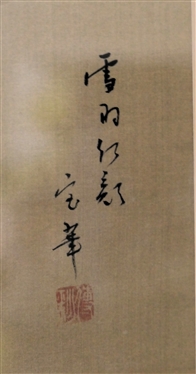 雪羽红颜
宝華